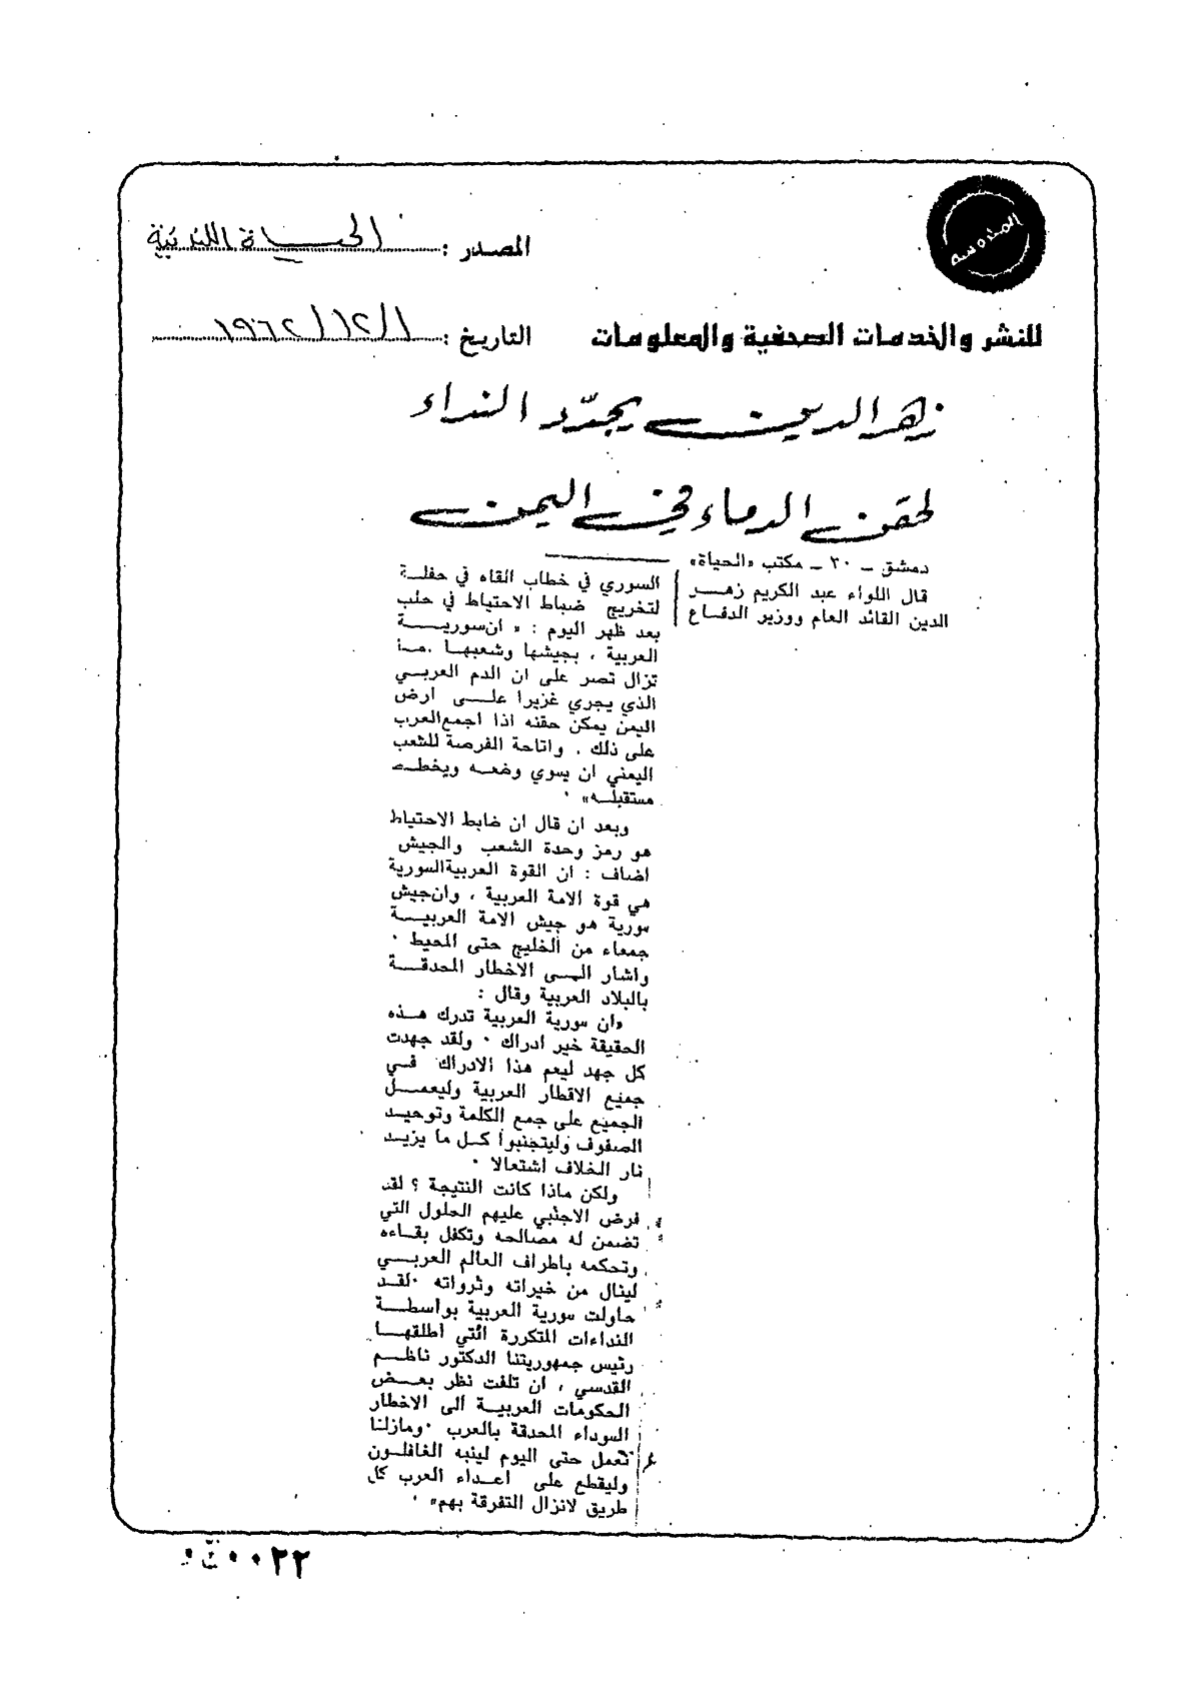 المصدر : الحياة اللندنية
للنشر والخدمات الصحفية والمعلومات
التاريخ : ١ / ١٢ / ١٩٦٢
زهر الدين يجدّد النداء
لحقن الدماء في اليمن
دمشق – ٣٠ – مكتب «الحياة»
قال اللواء عبد الكريم زهر
الدين القائد العام ووزير الدفاع
السوري في خطاب القاه في حفلة
لتخريج ضباط الاحتياط في حلب
بعد ظهر اليوم : « ان سورية
العربية ، بجيشها وشعبها ، ما
تزال تصر على ان الدم العربي
الذي يجري غزيرا على ارض
اليمن يمكن حقنه اذا اجمع العرب
على ذلك ، واتاحة الفرصة للشعب
اليمني ان يسوي وضعه ويخطط
مستقبله» ٠
وبعد ان قال ان ضابط الاحتياط
هو رمز وحدة الشعب والجيش
اضاف : ان القوة العربية السورية
هي قوة الامة العربية ، وان جيش
سورية هو جيش الامة العربية
جمعاء من الخليج حتى المحيط ٠
واشار الى الاخطار المحدقة
بالبلاد العربية وقال :
«ان سورية العربية تدرك هذه
الحقيقة خير ادراك ٠ ولقد جهدت
كل جهد ليعم هذا الادراك في
جميع الاقطار العربية وليعمل
الجميع على جمع الكلمة وتوحيد
الصفوف وليتجنبوا كل ما يزيد
نار الخلاف اشتعالا ٠
ولكن ماذا كانت النتيجة ؟ لقد
فرض الاجنبي عليهم الحلول التي
تضمن له مصالحه وتكفل بقاءه
وتحكمه باطراف العالم العربي
لينال من خيراته وثرواته ٠ لقد
حاولت سورية العربية بواسطة
النداءات المتكررة التي اطلقها
رئيس جمهوريتنا الدكتور ناظم
القدسي ، ان تلفت نظر بعض
الحكومات العربية الى الاخطار
السوداء المحدقة بالعرب ٠ ومازلنا
نعمل حتى اليوم لينبه الغافلون
وليقطع على اعداء العرب كل
طريق لانزال التفرقة بهم» ٠